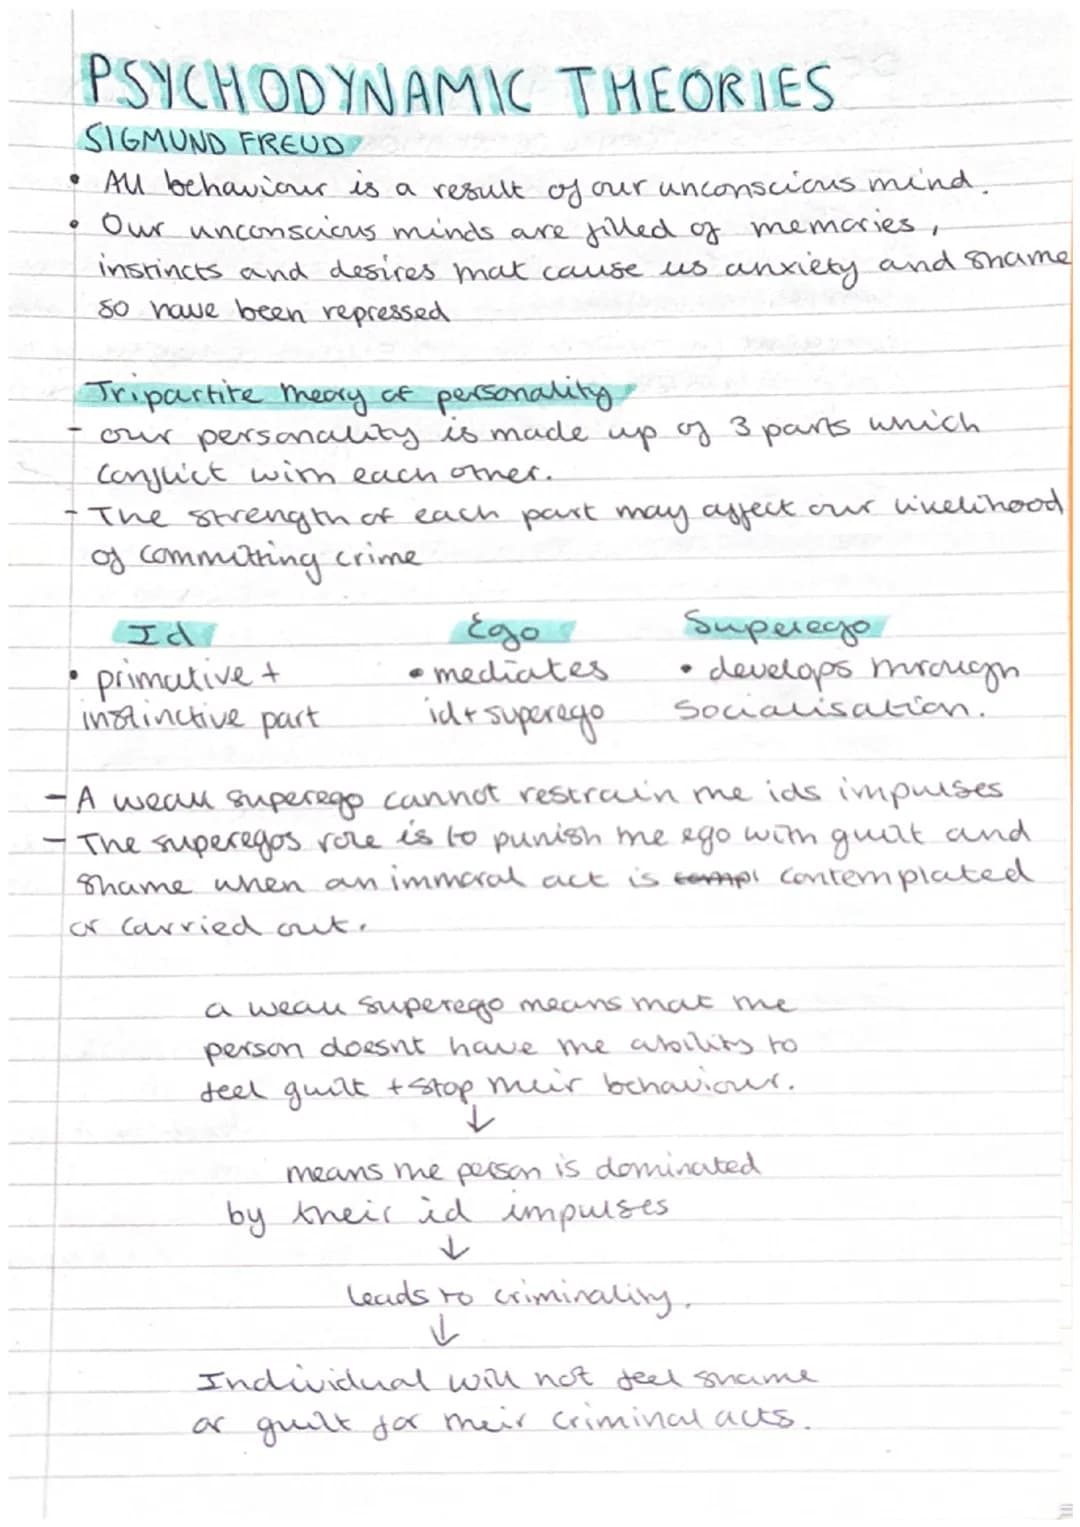 PSYCHODYNAMIC THEORIES
SIGMUND FREUD
• All behaviour is a result of our unconscious mind.
• Our unconscious minds are filled of memories,
instincts and desires that cause us anxiety and shame
so have been repressed
Tripartite theory of personality
- our personality is made up of 3 parts which
conflict with each other.
- The strength of each part may affect our likelihood
of committing crime
Id
• primative +
instinctive part
Ego
• mediates
id + superego
Superego
• develops through
socialisation.
- A weak superego cannot restrain the ids impulses
- The superegos role is to punish the ego with guilt and
shame when an immoral act is compl contemplated
or carried out.
a weak superego means that the
person doesnt have the ability to
feel guilt + stop their behaviour.
↓
means the person is dominated
by their id impulses
↓
leads to criminality.
↓
Individual will not feel shame
or guilt for their criminal acts.